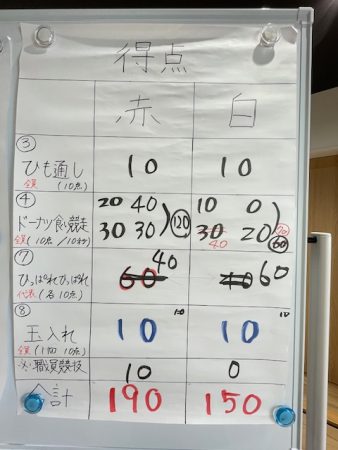 得点
赤 白
③
ひも通し 10 10
全員 (10点)
④ 20 40 10 0
ドーナツ食い競走 120 70
全員 (10点/10秒) 30 30 30 20 60
40
⑦ 40
ひっぱれひっぱれ 60 40 60
代表 (各10点)
⑧ 10 10
玉入れ 10 10
全員 (1回10点)
※職員競技 10 0
合計 190 150